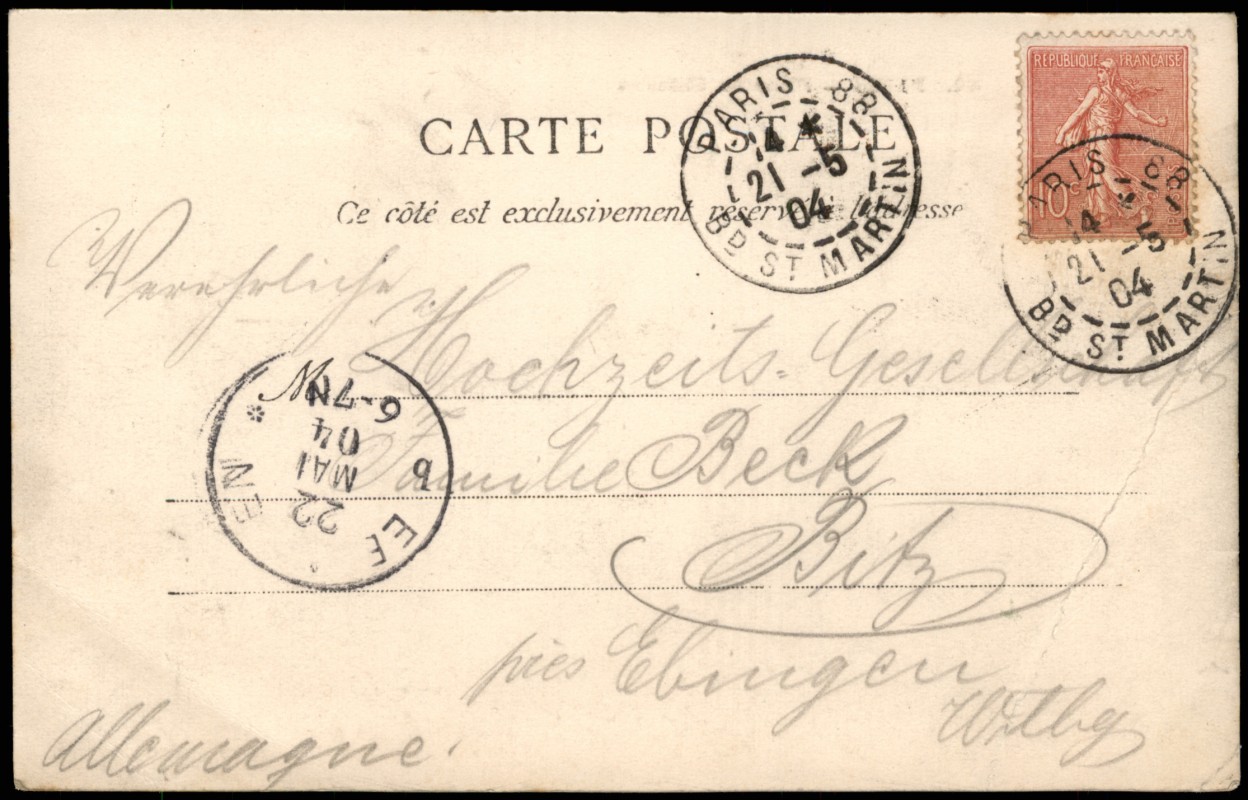 CARTE POSTALE
Ce côté est exclusivement réservé à l'adresse
PARIS 88
14 *
21 -5
04
BD ST MARTIN
RÉPUBLIQUE FRANÇAISE
10 c
PARIS 88
14 *
21 -5
04
BD ST MARTIN
Verehrliche
M Hochzeits-Gesellschaft
Familie Beck
Bitz
près Ebingen
Wtbg
Allemagne.
22
MAI
04
6-7N